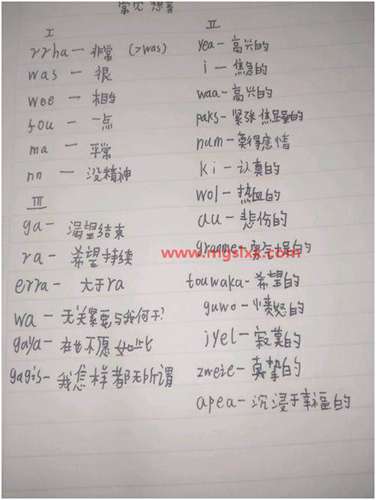 常见想音
I
rrha — 非常 (>was)
was — 很
wee — 相当
fou — 一点
ma — 平常
nn — 没精神
III
ga — 渴望结束
ra — 希望持续
erra — 大于ra
wa — 无关紧要与我何干?
gaya — 在也不愿如此
gagis — 我怎样都无所谓
II
yea — 高兴的
i — 焦急的
waa — 高兴的
paks — 紧张焦虑的
num — 莫得感情
ki — 认真的
wol — 热血的
au — 悲伤的
granme —
touwaka — 希望的
guwo — 愤怒的
iyel — 寂寞的
zweie — 真挚的
apea — 沉浸于幸福的
www.mgslxx.com